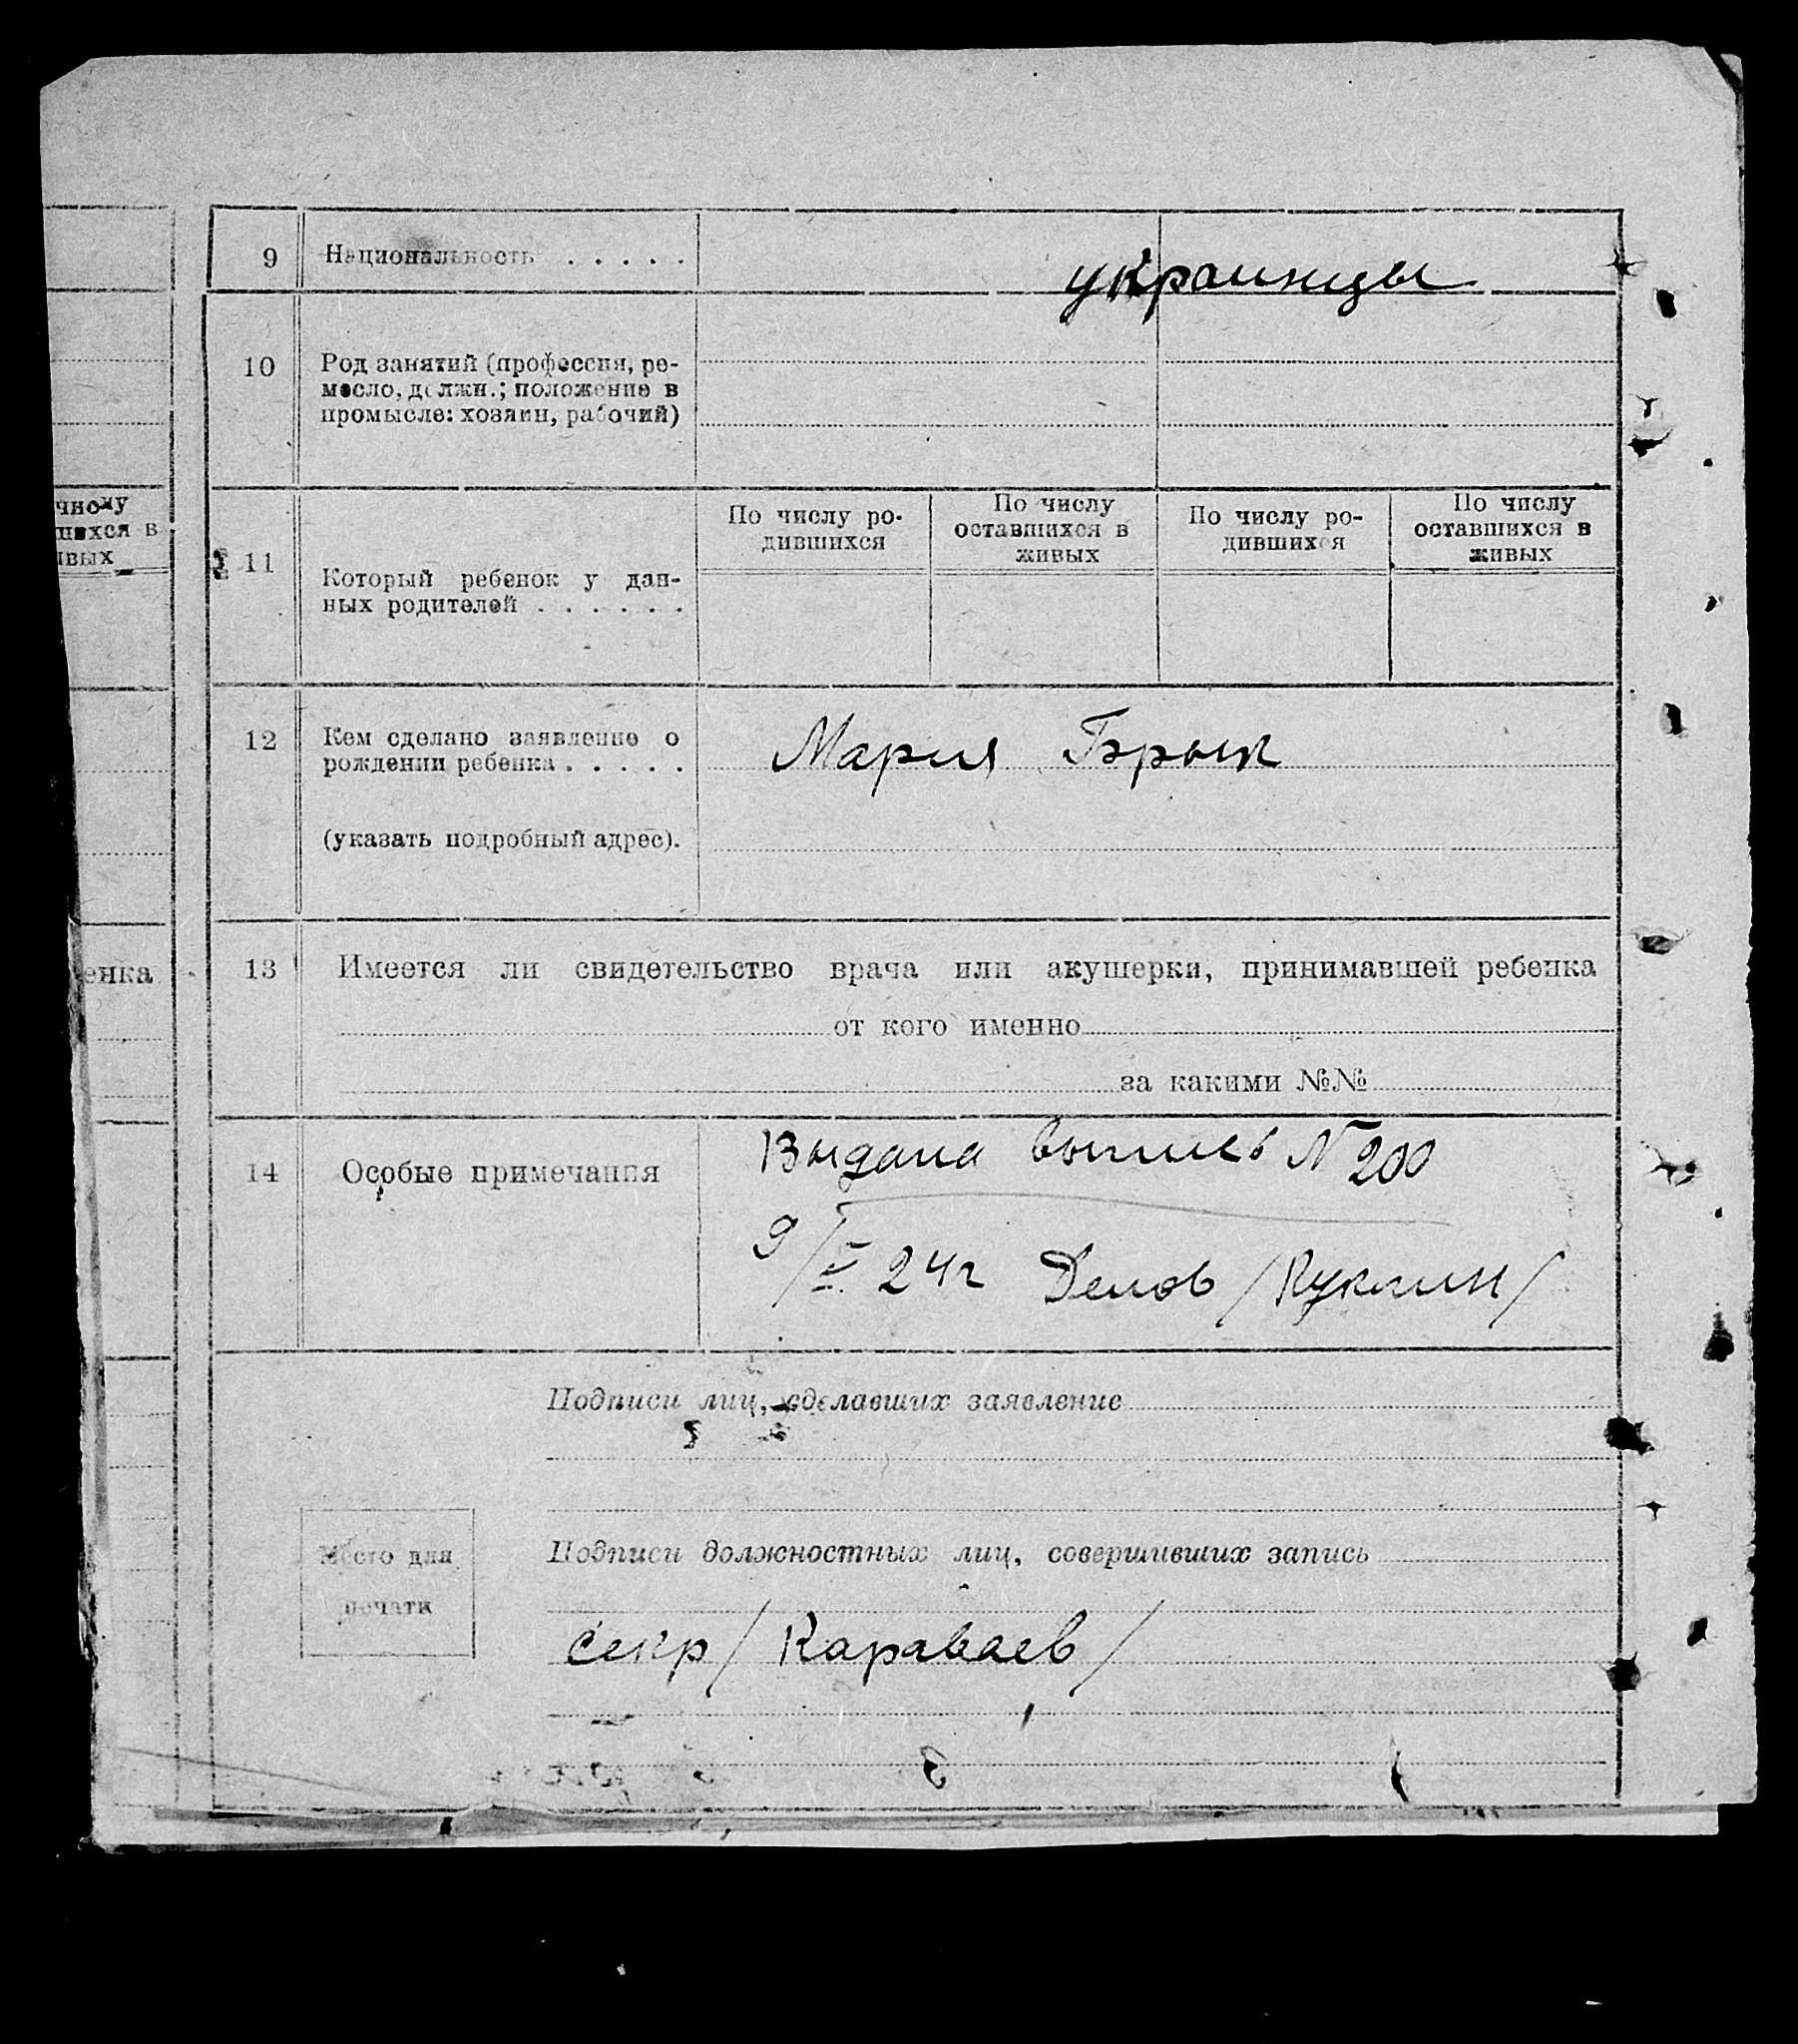 9 Национальность . . . . .
украинцы
10 Род занятий (профессия, ре-
месло, должн.; положение в
промысле: хозяин, рабочий)
чному
шихся в
ивых
11 Который ребенок у дан-
ных родителей . . . . . .
По числу ро-
дившихся
По числу
оставшихся в
живых
По числу ро-
дившихся
По числу
оставшихся в
живых
12 Кем сделано заявление о
рождении ребенка . . . . .
(указать подробный адрес).
Мария
енка
13 Имеется ли свидетельство врача или акушерки, принимавшей ребенка
от кого именно
за какими №№
14 Особые примечания
Выдана выпись N 200
9/V 24г Делов /Куклин/
Подписи лиц, сделавших заявление
Место для
печати
Подписи должностных лиц, совершивших запись
секр /Караваев/